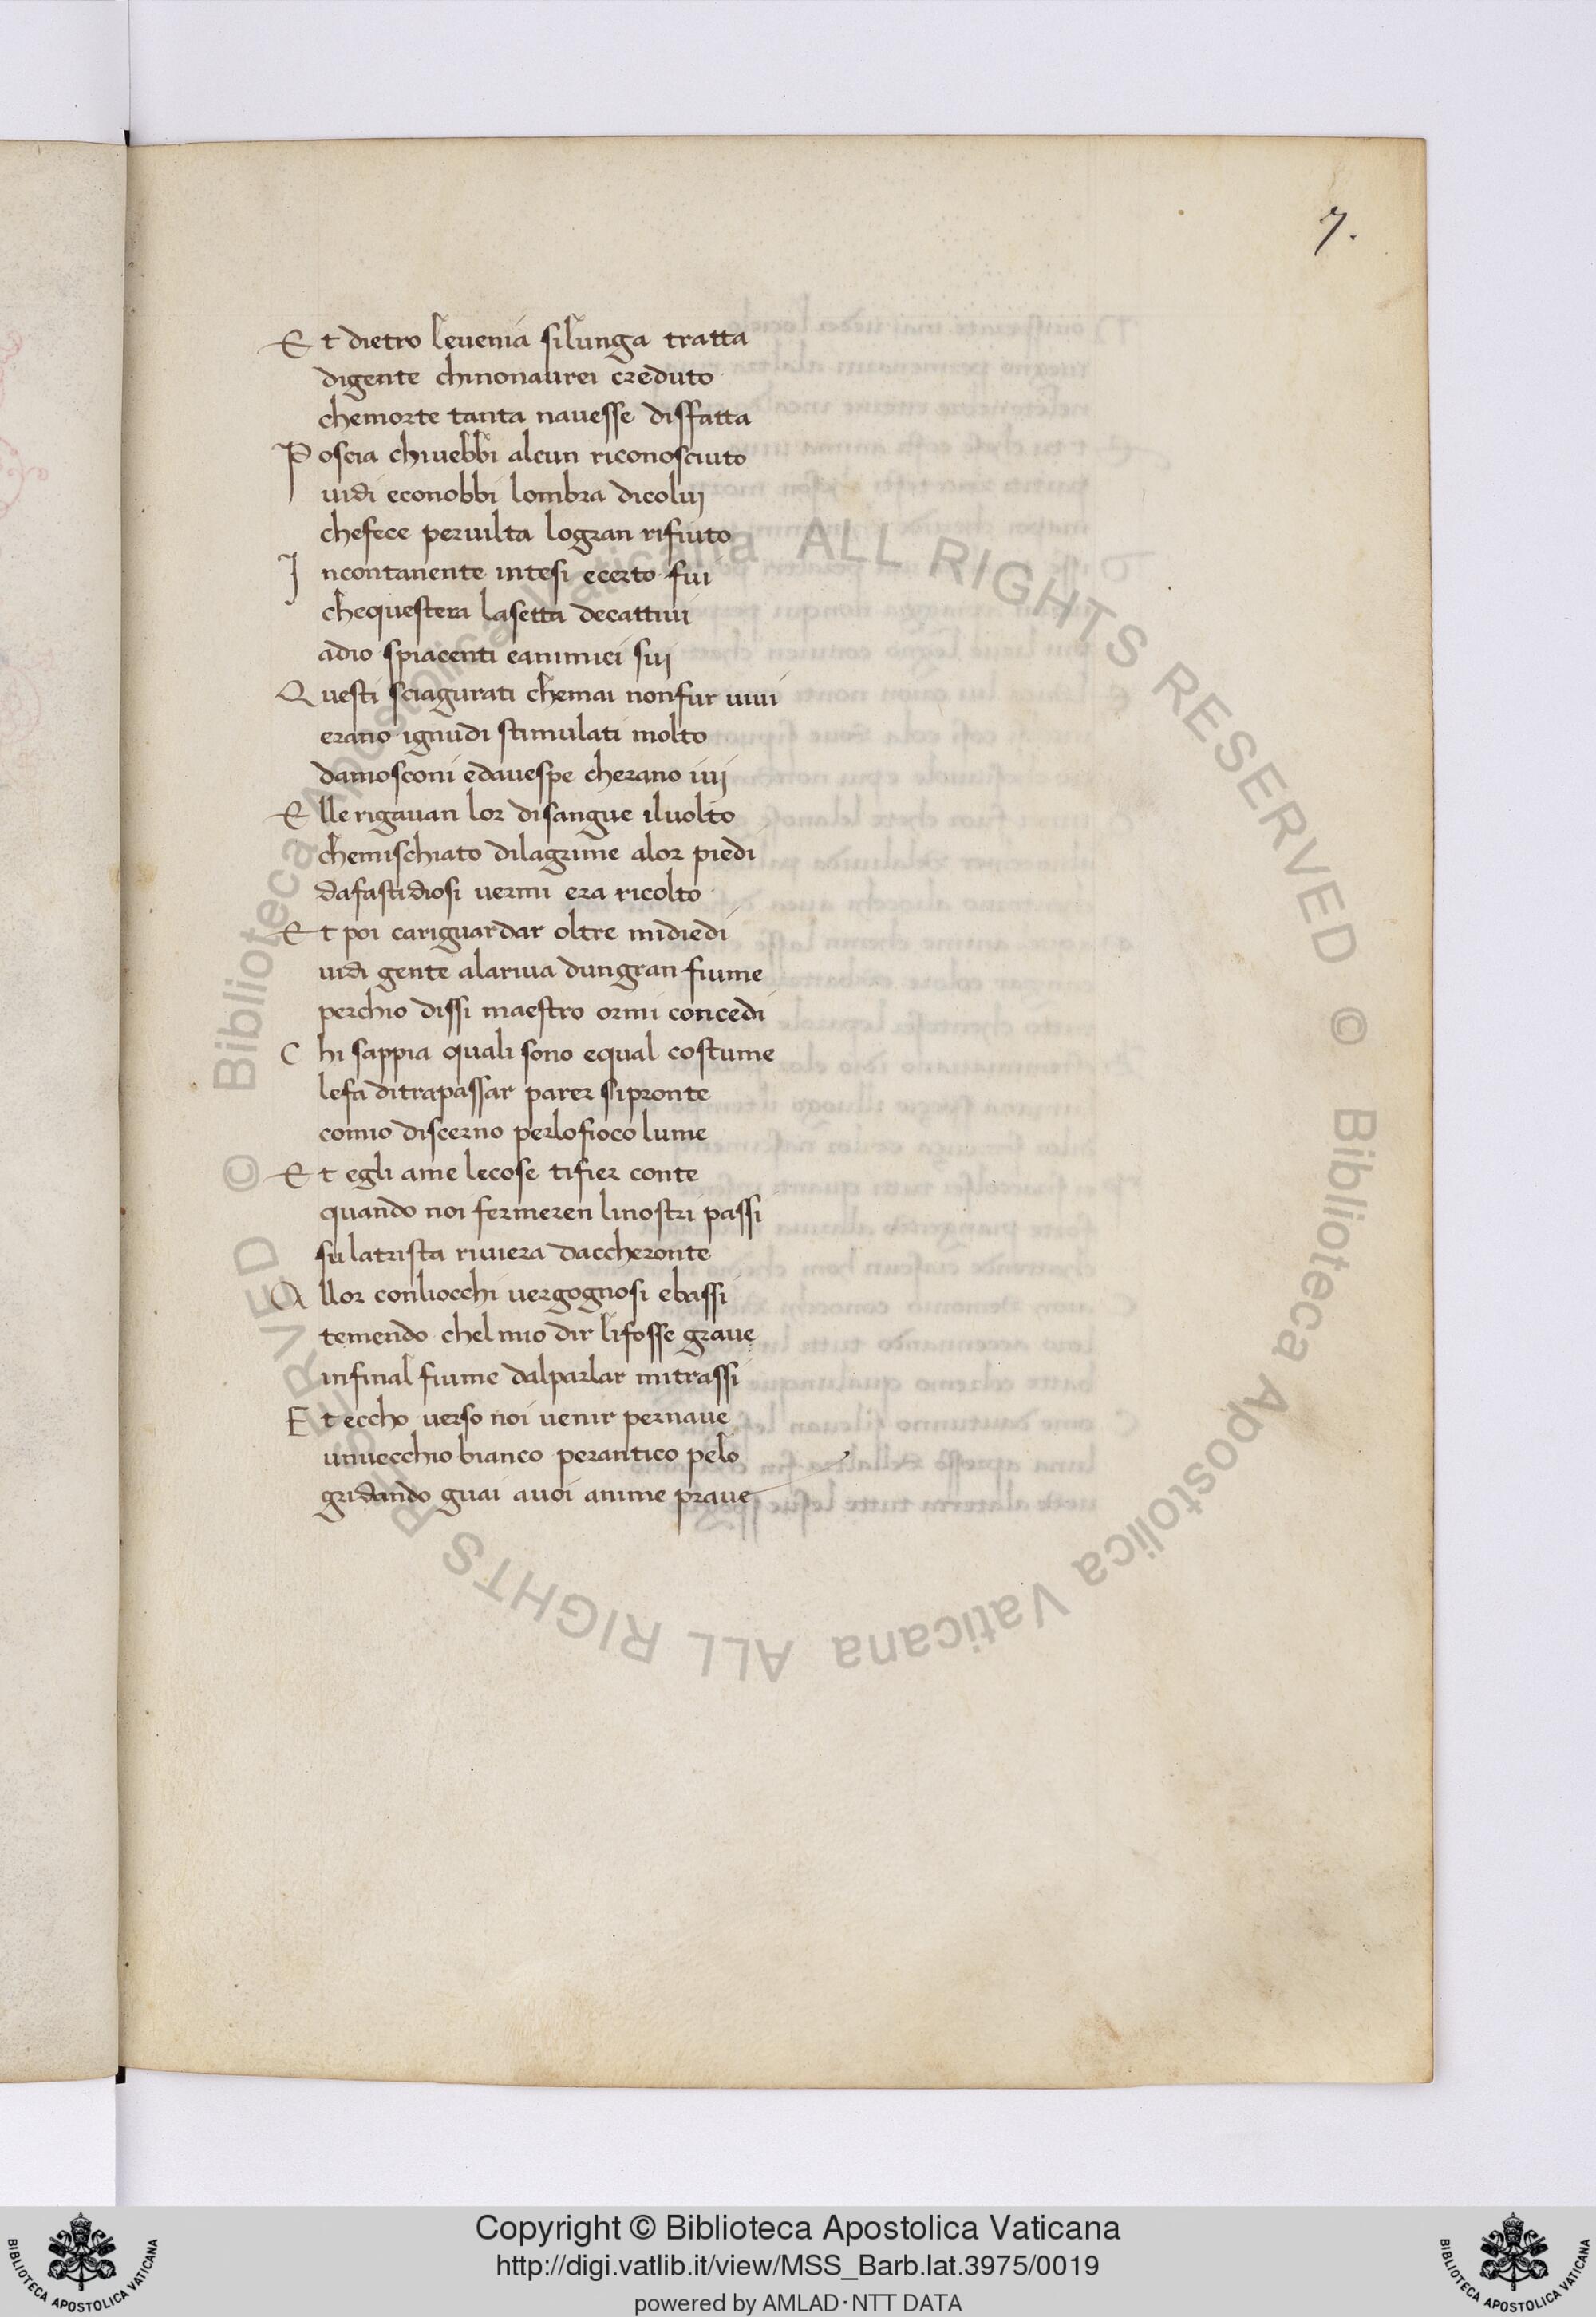 7.
Et dietro leuenia silunga tratta
digente chinonaurei creduto
chemorte tanta nauesse disfatta
Poscia chiuebbi alcun riconosciuto
uidi econobbi lombra dicoluj
chefece peruilta logran rifiuto
Incontanente intesi ecerto fui
chequestera lasetta decattiui
adio spiacenti eanimici suj
Questi sciagurati chemai nonfur uiui
erano ignudi stimulati molto
damosconi edauespe cherano iuj
Elle rigauan lor disangue iluolto
chemischiato dilagrime alor piedi
dafastidiosi uermi era ricolto
Et poi cariguardar oltre midiedi
uidi gente alariua dungran fiume
perchio dissi maestro ormi concedi
Chi sappia quali sono equal costume
lefa ditrapassar parer sipronte
comio discerno perlofioco lume
Et egli ame lecose tifier conte
quando noi fermeren linostri passi
su latrista riuiera daccheronte
Allor conliocchi uergognosi ebassi
temendo chel mio dir lifosse graue
infinal fiume dalparlar mitrassi
Et eccho uerso noi uenir pernaue
unuecchio bianco perantico pelo
gridando guai auoi anime praue
© Biblioteca Apostolica Vaticana ALL RIGHTS RESERVED © Biblioteca Apostolica Vaticana ALL RIGHTS RESERVED
Copyright © Biblioteca Apostolica Vaticana
http://digi.vatlib.it/view/MSS_Barb.lat.3975/0019
powered by AMLAD·NTT DATA
BIBLIOTECA APOSTOLICA VATICANA
BIBLIOTECA APOSTOLICA VATICANA